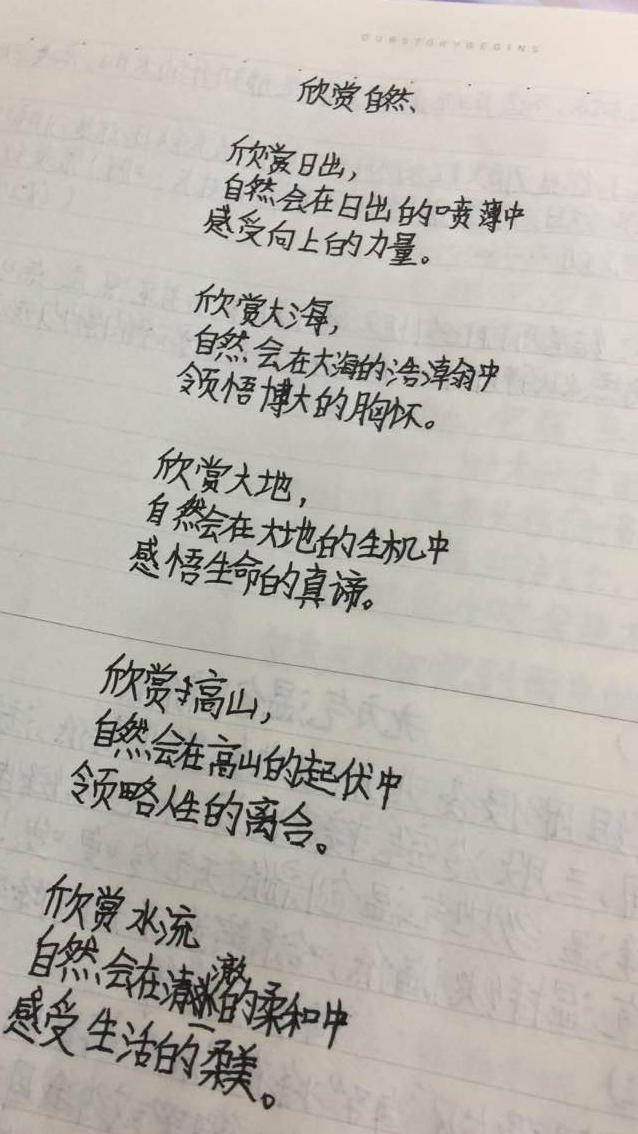 OURSTORYBEGINS
欣赏自然
欣赏日出，
自然会在日出的喷薄中
感受向上的力量。
欣赏大海，
自然会在大海的浩瀚中
领悟博大的胸怀。
欣赏大地，
自然会在大地的生机中
感悟生命的真谛。
欣赏高山，
自然会在高山的起伏中
领略人生的离合。
欣赏水流
自然会在清澈的柔和中
感受生活的柔美。